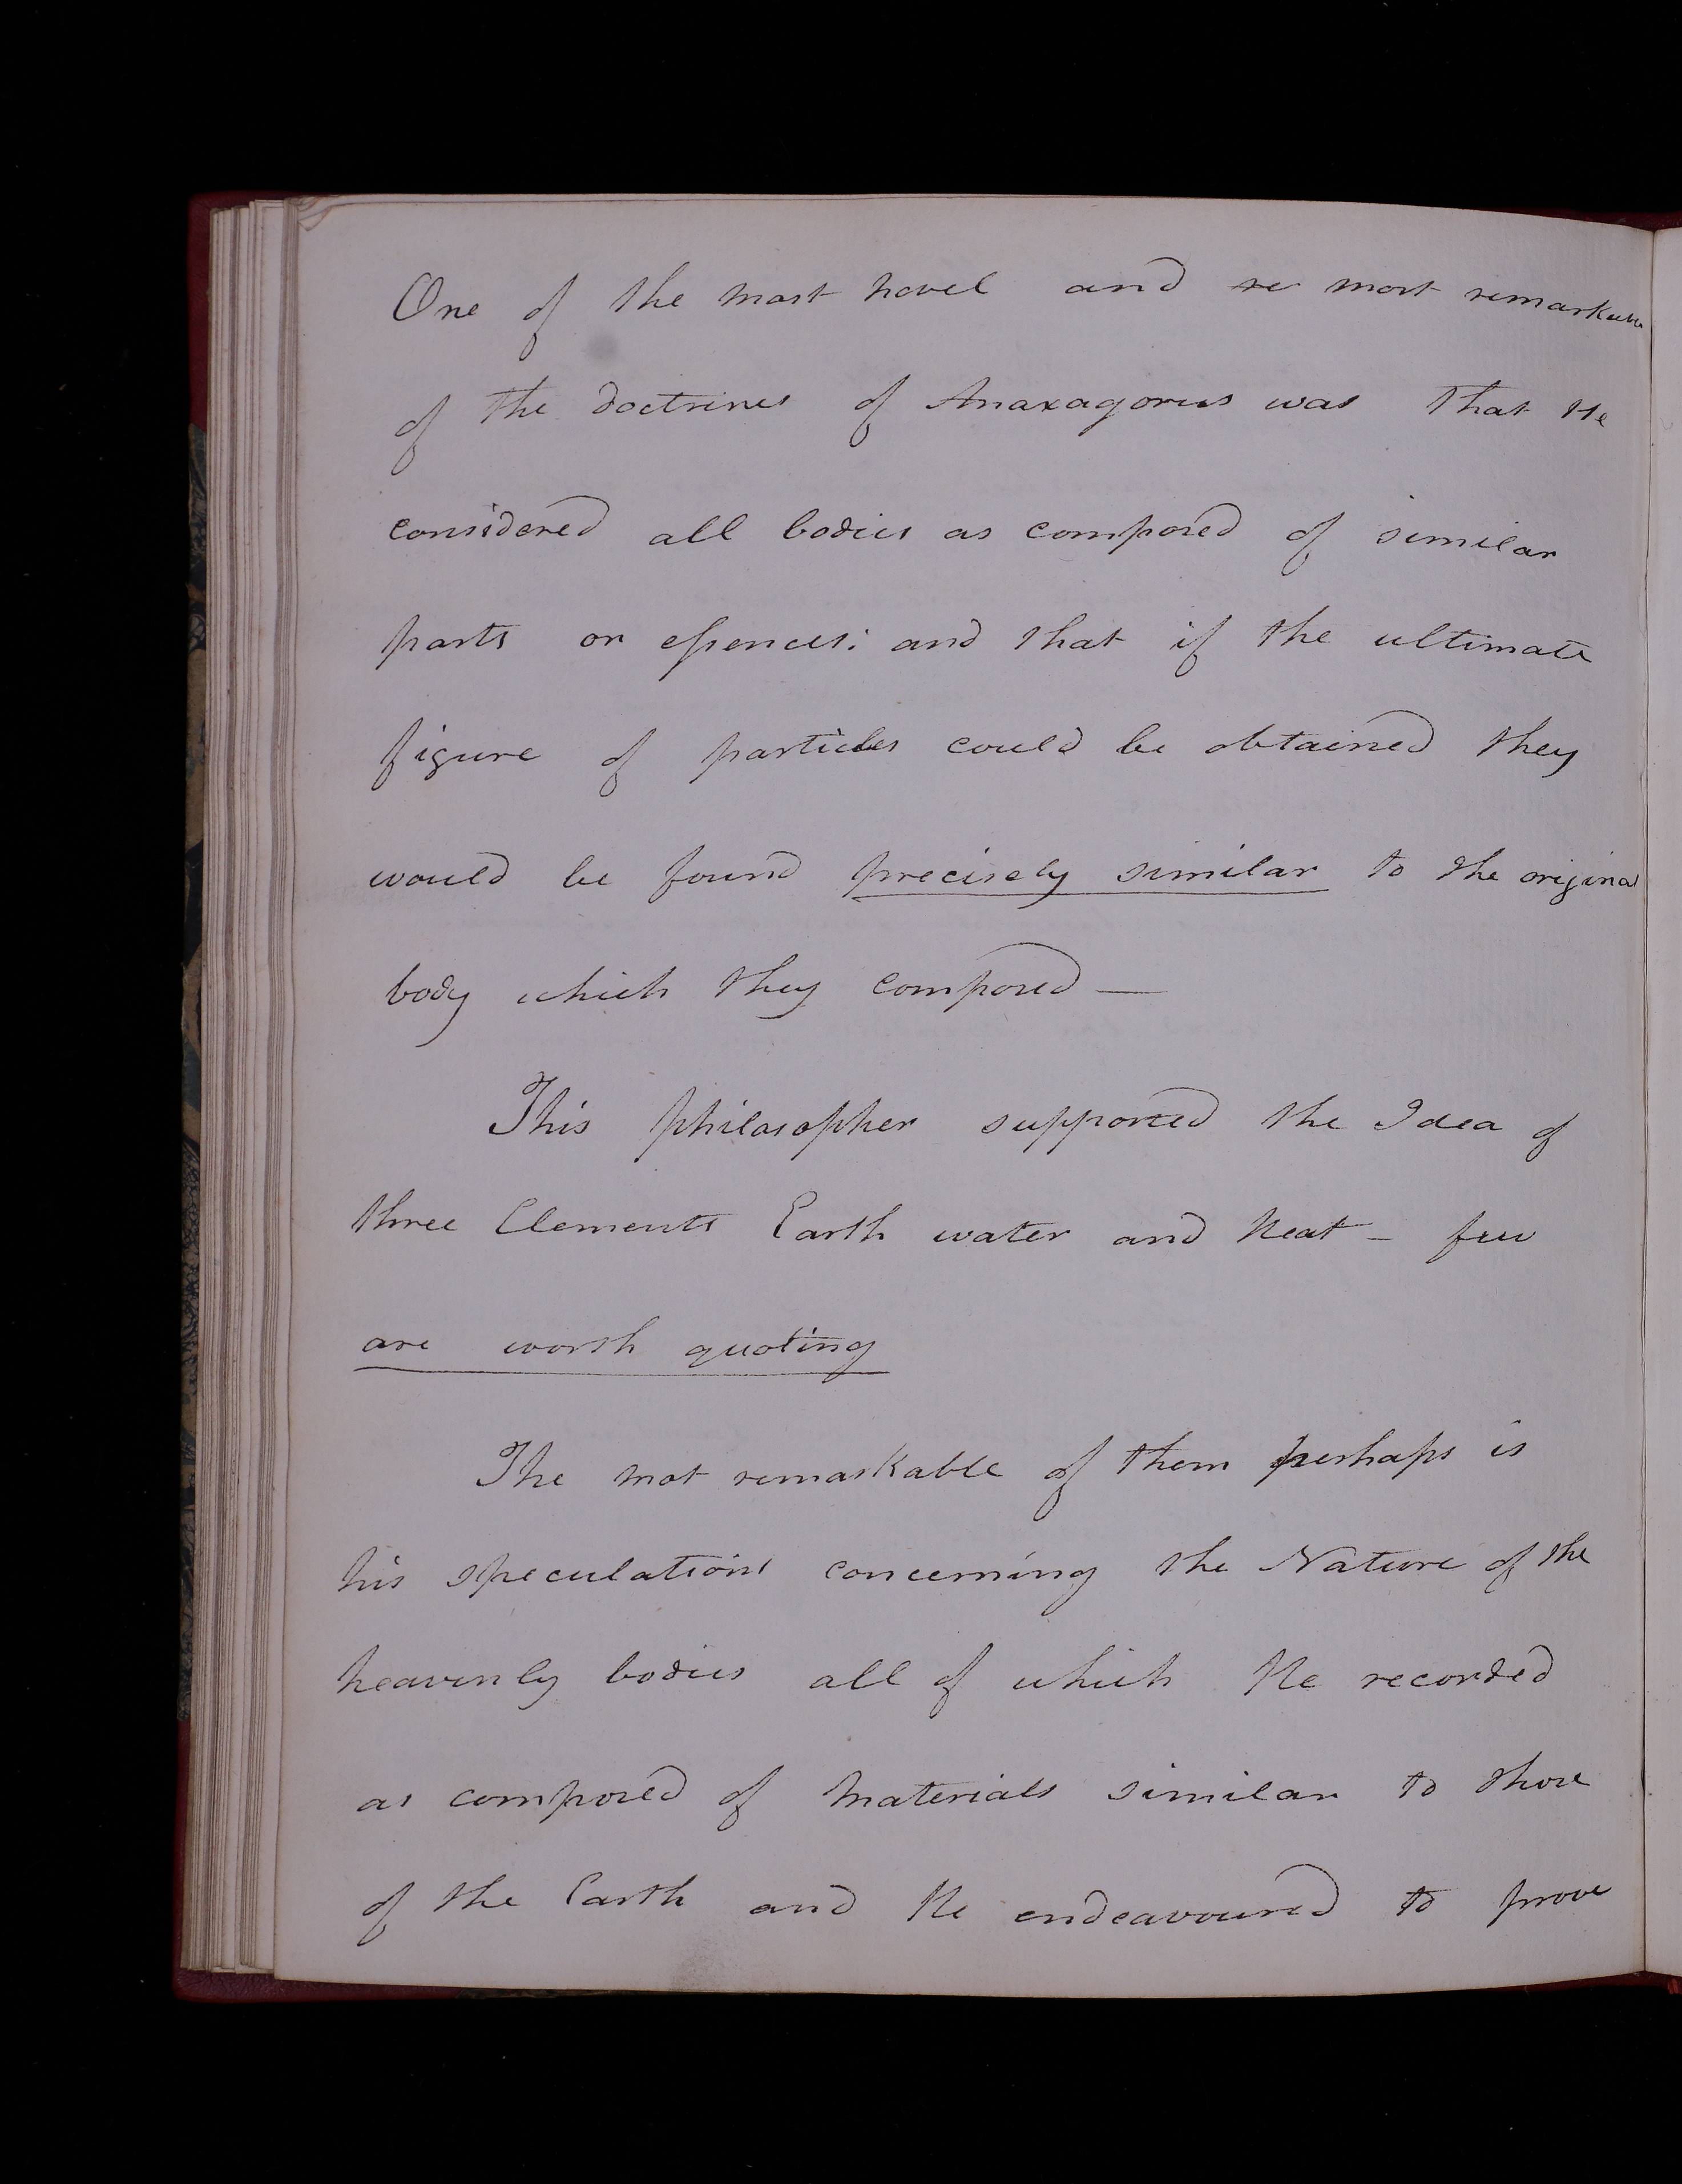 One of the most novel and re most remarkable
of the doctrines of Anaxagorus was that He
considered all bodies as composed of similar
parts or essences: and that if the ultimate
figure of particles could be obtained they
would be found precisely similar to the original
body which they composed —
This philosopher supported the Idea of
three Elements Earth water and heat – few
are worth quoting
The mot remarkable of them perhaps is
his speculations concerning the Nature of the
heavenly bodies all of which He recorded
as composed of materials similar to those
of the Earth and He endeavoured to prove